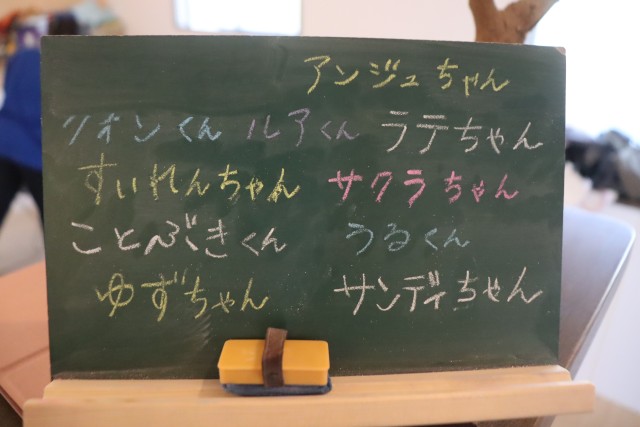 アンジュちゃん
リオンくん ルアくん ラテちゃん
すいれんちゃん サクラちゃん
ことぶきくん うるくん
ゆずちゃん サンディちゃん